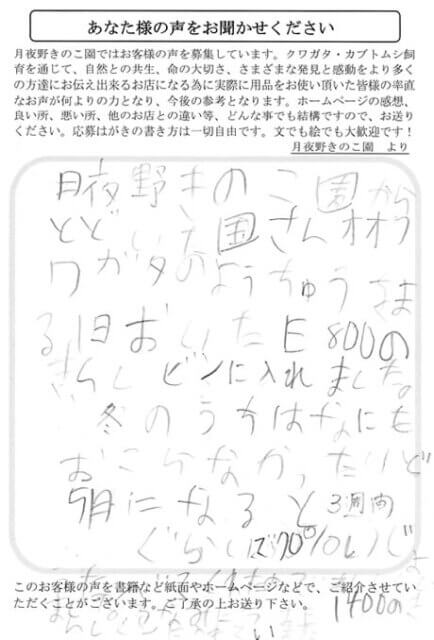 あなた様の声をお聞かせください
月夜野きのこ園ではお客様の声を募集しています。クワガタ・カブトムシ飼
育を通じて、自然との共生、命の大切さ、さまざまな発見と感動をより多く
の方達にお伝え出来るお店になる為に実際に用品をお使い頂いた皆様の率直
なお声が何よりの力となり、今後の参考となります。ホームページの感想、
良い所、悪い所、他のお店との違い等、どんな事でも結構ですので、お送り
ください。応募はがきの書き方は一切自由です。文でも絵でも大歓迎です！
月夜野きのこ園　より
月夜野きのこ園から
とどいた国さんオオク
ワガタのようちゅうさま
る1日おいたE800の
ビンに入れました。
冬のうちはなにも
おこらなかったけど
5月になると3週間
ぐらいで70%
このお客様の声を書籍など紙面やホームページなどで、ご紹介させてい
ただくことがございます。ご了承の上お送り下さい。
1400の